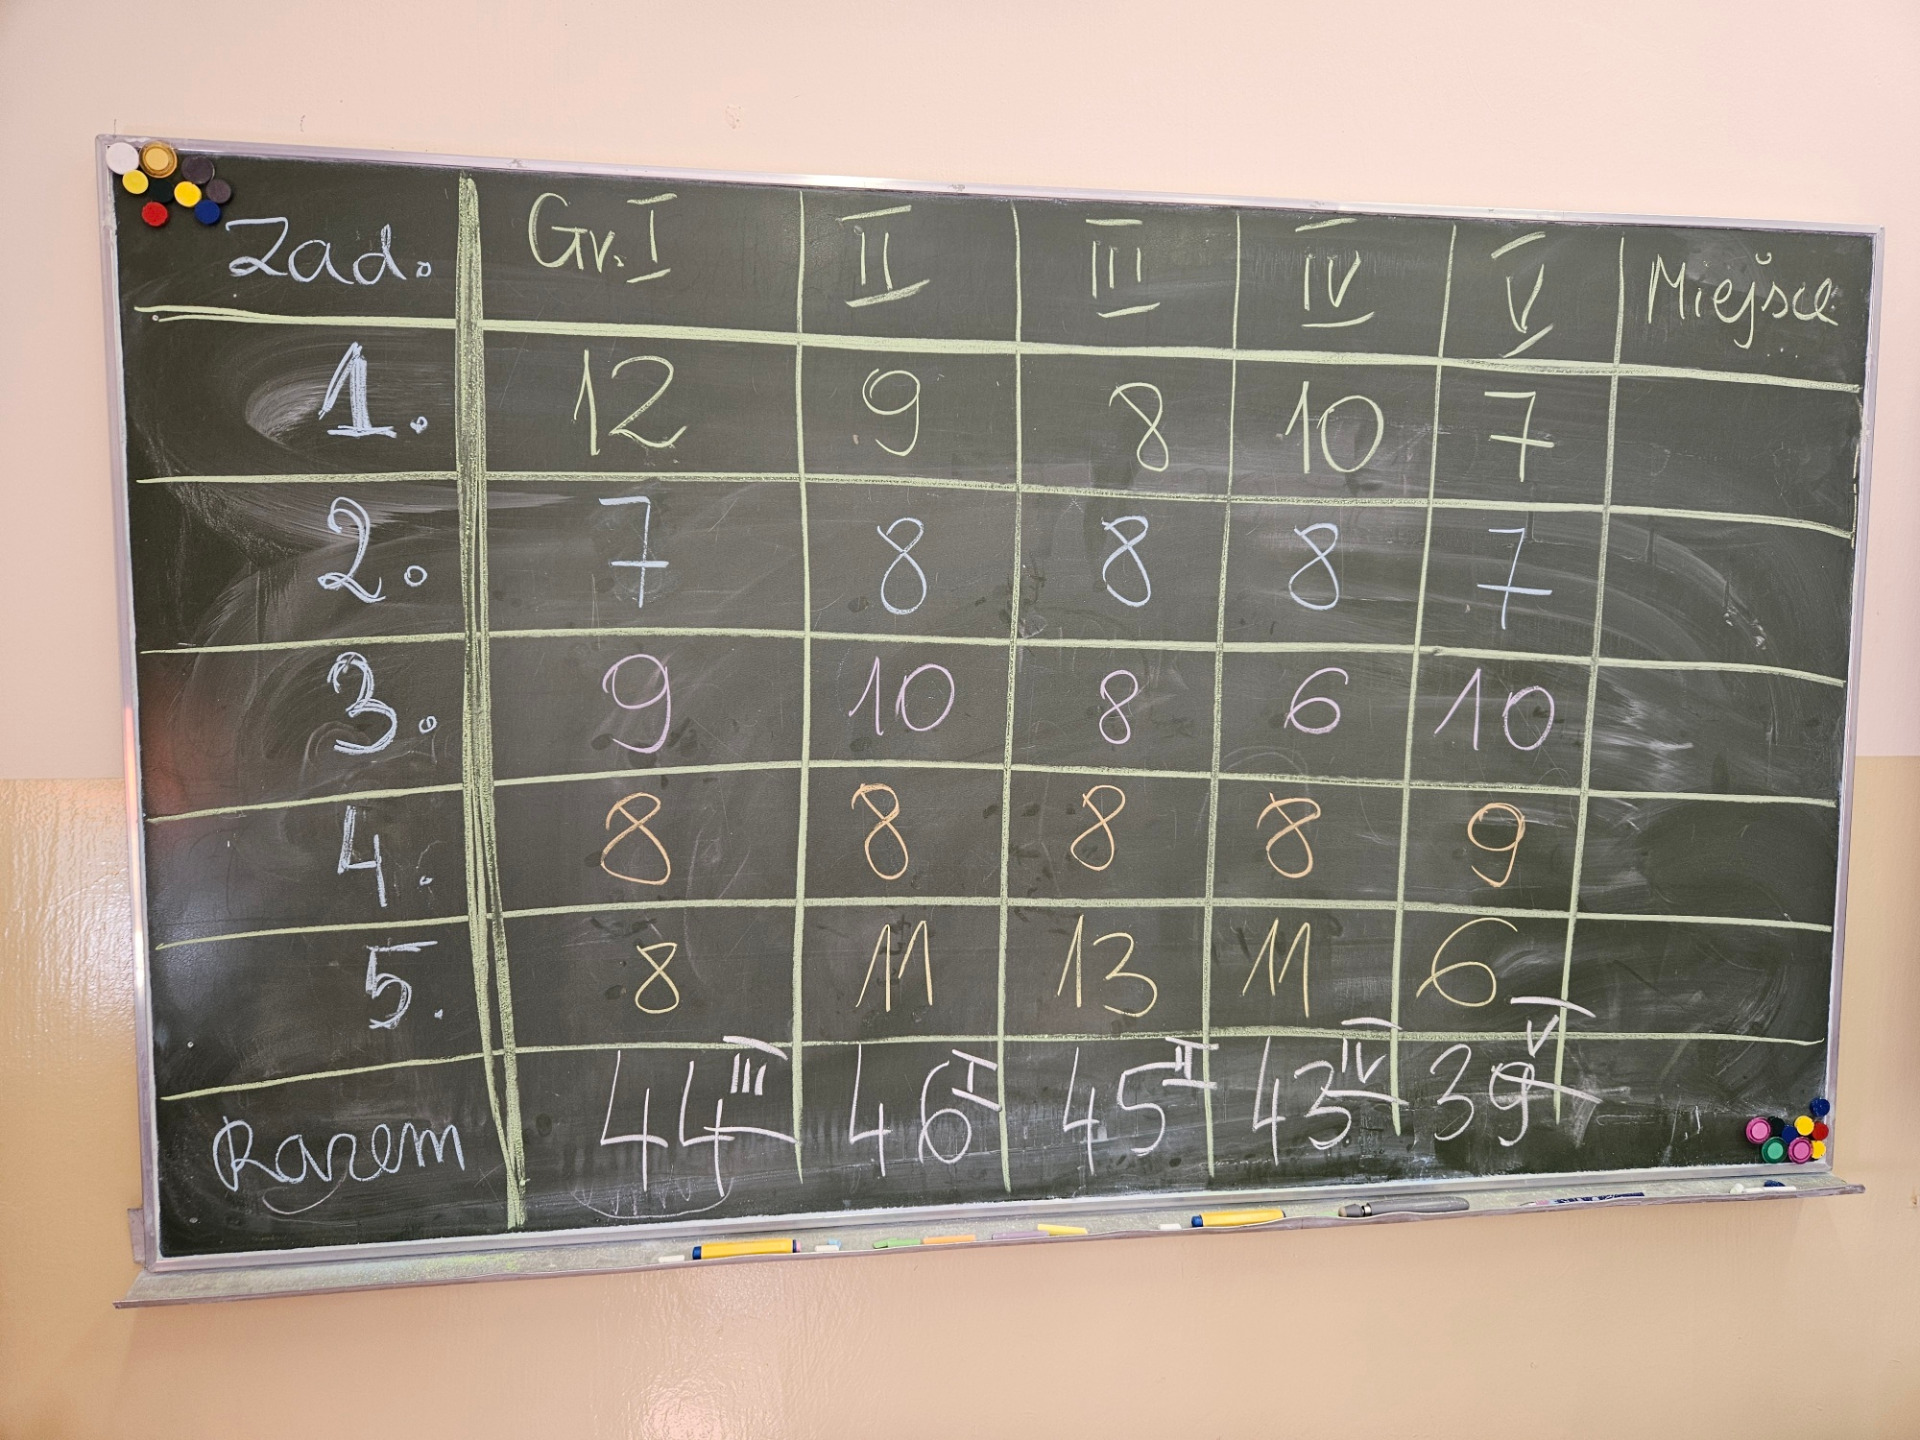 Zad. Gr. I II III IV V Miejsce
1. 12 9 8 10 7
2. 7 8 8 8 7
3. 9 10 8 6 10
4. 8 8 8 8 9
5. 8 11 13 11 6
Razem 44 III 46 I 45 II 43 IV 39 V